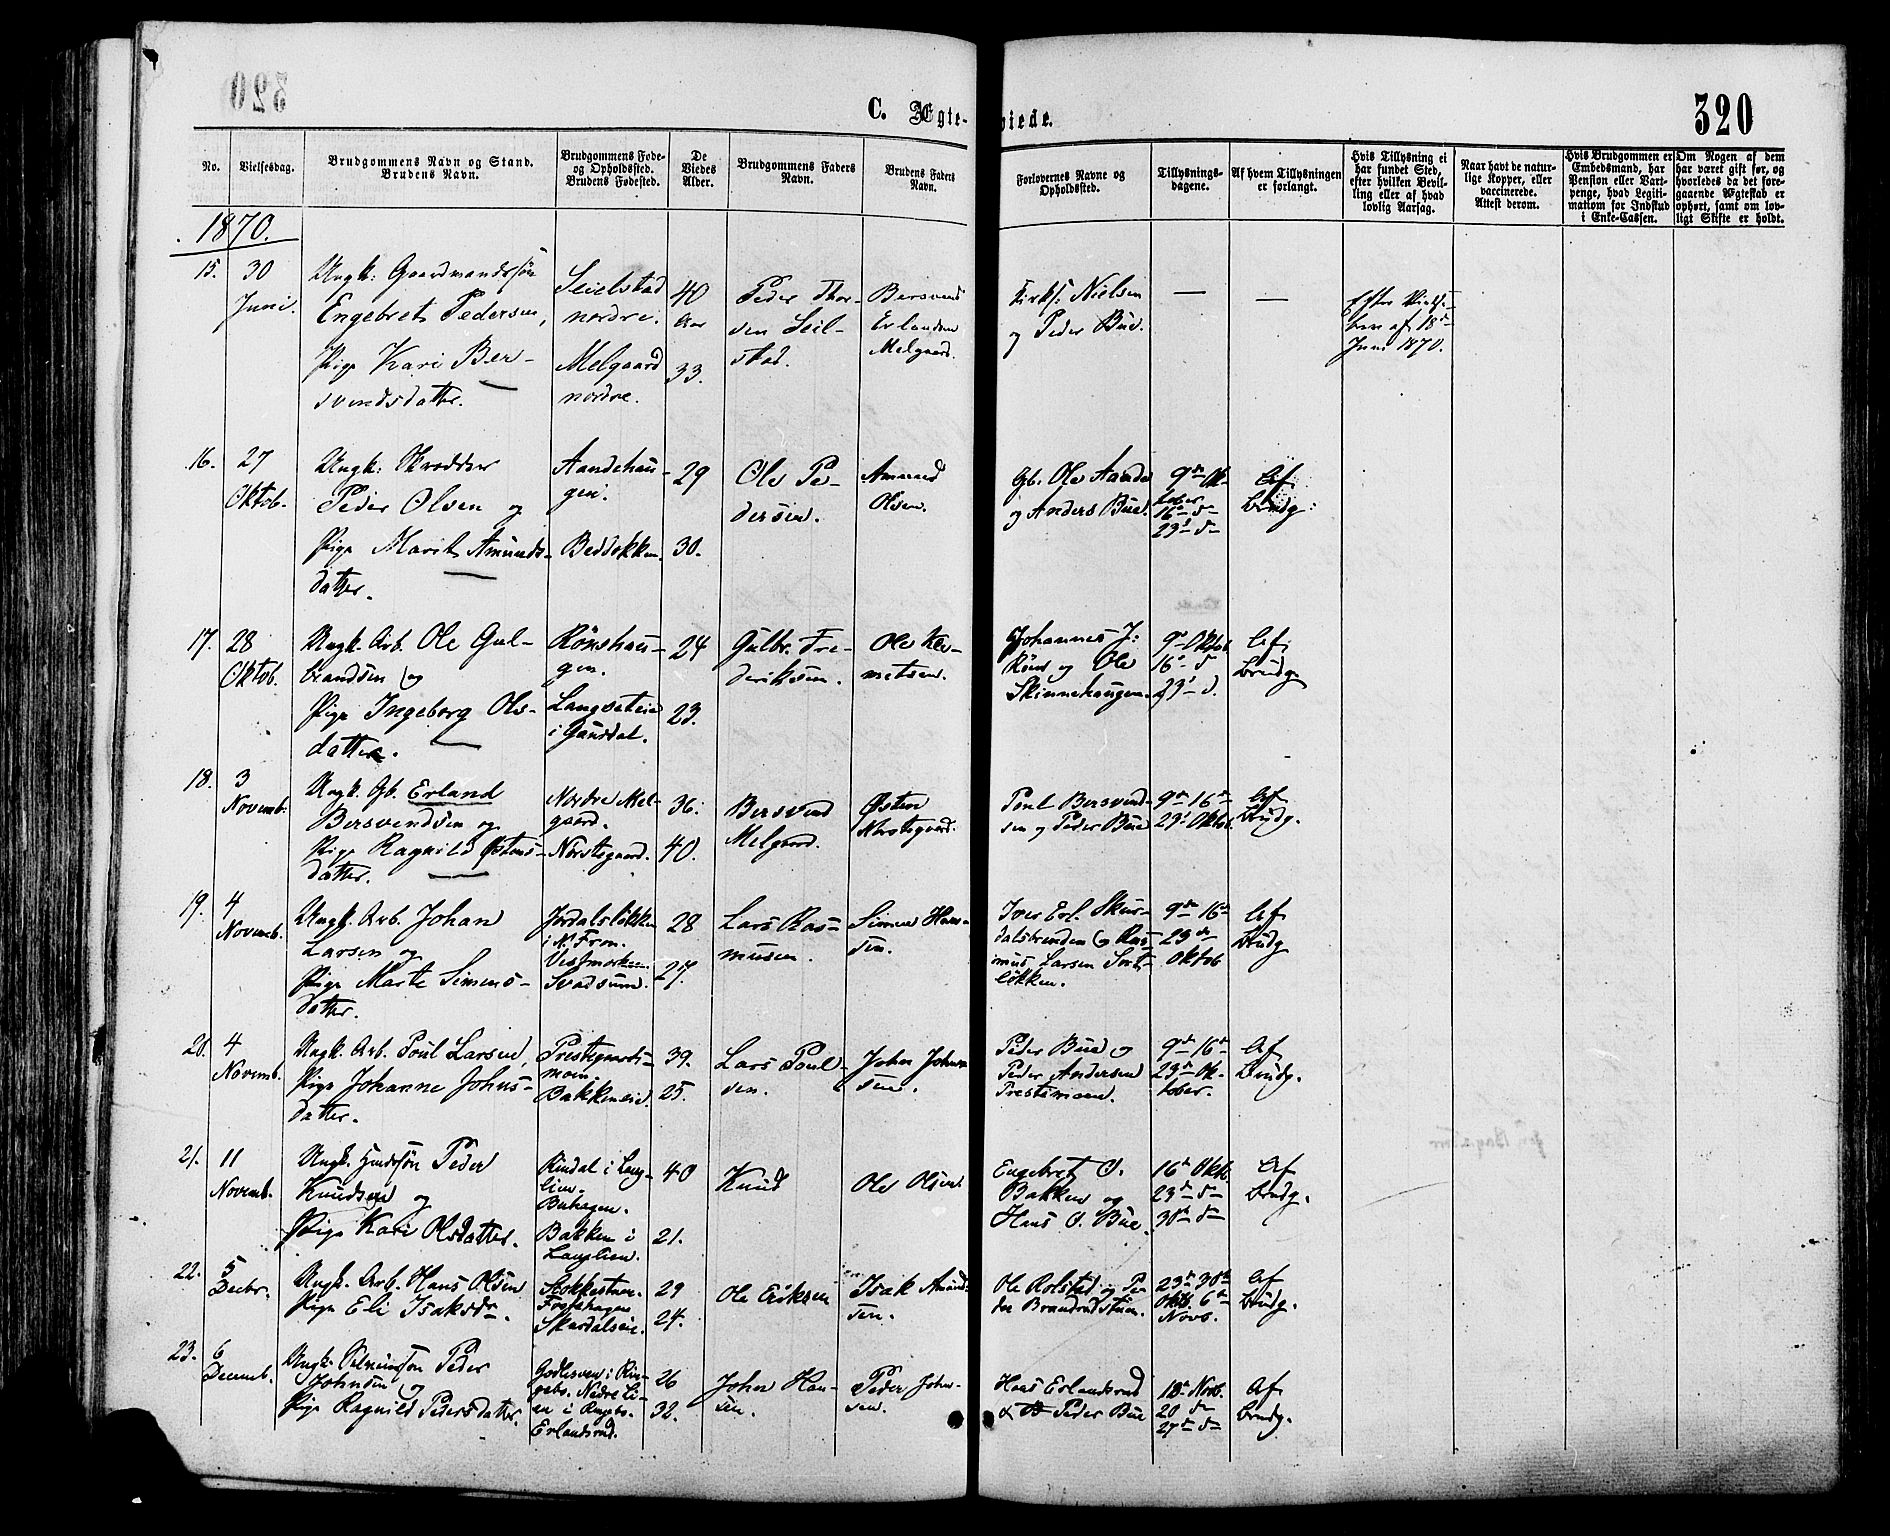 320
C. Ægte-
viede.
320
No.
Vielsesdag.
Brudgommens Navn og Stand.
Brudens Navn.
Brudgommens Føde-
og Opholdssted.
Brudens Fødested.
De
Viedes
Alder.
Brudgommens Faders
Navn.
Brudens Faders
Navn.
Forlovernes Navne og
Opholdssted.
Tillysnings-
dagene.
Af hvem Tillysningen
er forlangt.
Hvis Tillysning ei
har fundet Sted,
efter hvilken Bevil-
ling eller af hvad
lovlig Aarsag.
Naar havt de natur-
lige Kopper, eller
vaccinerede.
Attest derom.
Hvis Brudgommen er
Embedsmand, har
Pension eller Vart-
penge, hvad Legiti-
mation for Indskud
i Enke-Cassen.
Om Nogen af dem
har været gift før, og
hvorledes da det fore-
gaaende Ægteskab er
ophørt, samt om lov-
ligt Skifte er holdt.
1870.
15. 30
Juni.
Ungk: Gaardmandssøn
Engebret Pedersen,
Pige Kari Ber-
svendsdatter.
Seielstad
nordre.
Melgaard
nordre.
40
Aar
33.
Peder Thor-
sen Seil-
stad.
Bersvend
Erlandsen
Melgaard.
Kirks. Nielsen
og Peder Bue.
—
—
Efter
af 18de
Juni 1870.
16. 27
Oktob.
Ungk: Skrædder
Peder Olsen og
Pige Marit Amunds-
datter.
Aandehau-
gen.
Beddokken.
29
30.
Ole Pe-
dersen.
Amund
Olsen.
Gb. Ole Aande
og Anders Bue.
9de Ok-
tober
16de d
23de d
Af
Brudg:
17. 28
Oktob.
Ungk. Arb. Ole Gul-
brandsen og
Pige Ingeborg Ols-
datter.
Rönshau-
gen.
Langseteie
i Gausdal.
24
23.
Gulbr. Fre-
deriksen.
Ole
Johannes J:
Röns og Ole
Skinnehaugen.
9de Oktob.
16de d
23de d.
Af
Brudg
18. 3
Novemb.
Ungk. Gb. Erland
Bersvendsen og
Pige Ragnild Østens-
datter.
Nordre Mel-
gaard.
Norstegaard.
36.
40.
Bersvend
Melgaard.
Østen
Norstegaard.
Poul Bersvend-
sen og Peder Bue
9de 16de
23de Oktob.
Af
Brudg.
19. 4
Novemb.
Ungk. Arb. Johan
Larsen og
Pige Marte Simens-
datter.
Jordalsløkken
i N. Fron.
Svadsum.
28
27.
Lars Ras-
musen.
Simen Han-
sen.
Iver Erl. Skur-
dalsbrenden og Ras-
mus Larsen
løkken.
9de 16de
23de
Oktob
Af
Brudg
20. 4
Novemb.
Ungk. Arb. Poul Larsen,
Pige Johanne Johns-
datter.
Prestegaards-
moen.
Bakkeneie.
39.
25.
Lars Poul-
sen.
John John-
sen.
Peder Bue og
Peder Andersen
Prestemoen.
9de 16de
23de Ok-
tober.
Af
Brudg.
21. 11
Novemb.
Ungk. Peder
Knudsen og
Pige Kari Olsdatter.
Rindal i Lang-
lien.
Buhagen.
Bakken i
Langlien.
40
21.
Knud
Ole Olsen
Engebret O.
Bakken og
Hans O. Bue.
16de Oktb.
23de d
30de d
Af
Brudg.
22. 5
Decbr.
Ungk. Arb. Hans Olsen
Pige Eli Isaksdr.
Skurdalseie.
29
24.
Ole Eriksen
Isak Amund-
sen.
Ole Rolstad og Pe-
der Brandrudstuen.
23de 30de
Oktb. 6te
Novb.
Af
Brudg.
23. 6
Decemb.
Ungk. Peder
Johnsen og
Pige Ragnild Pedersdatter.
i Rin-
gebo. Nedre Li-
en i Ringebo.
Erlandsrud.
26
32.
John Han-
sen.
Peder John-
sen.
Hans Erlandsrud
& Peder Bue
18de Novb.
20 d
27de d
Af
Brudg.